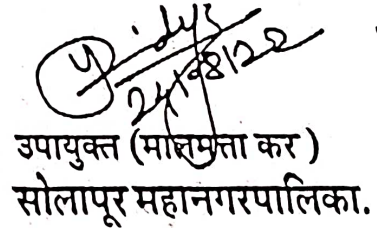 उपायुक्त (मालमत्ता कर )
सोलापूर महानगरपालिका.